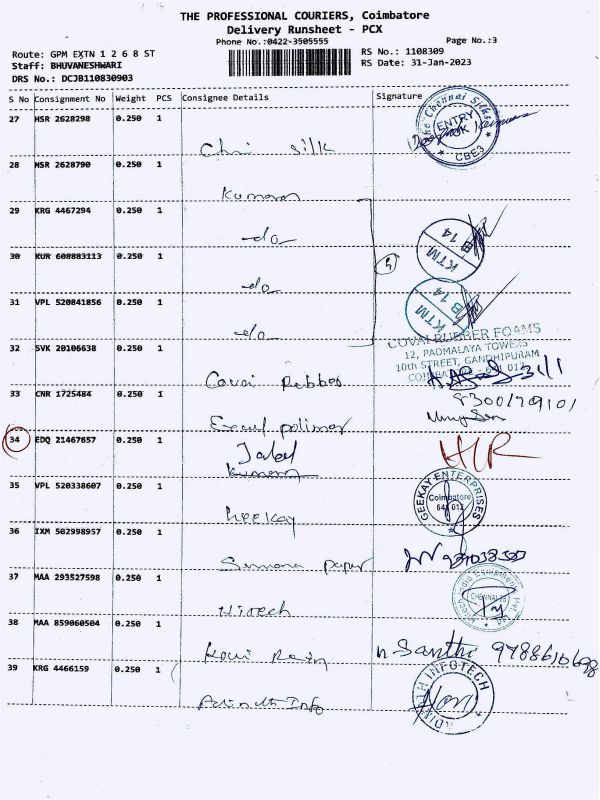 THE PROFESSIONAL COURIERS, Coimbatore
Delivery Runsheet - PCX
Phone No.:0422-3505555
Page No.:3
Route: GPM EXTN 1 2 6 8 ST
RS No.: 1108309
Staff: BHUVANESHWARI
RS Date: 31-Jan-2023
DRS No.: DCJB110830903
S No Consignment No Weight PCS Consignee Details Signature
The Chennai Silks
ENTRY
CBE3
27 HSR 2628298 0.250 1
Silk
28 HSR 2628790 0.250 1
Kumaran
29 KRG 4467294 0.250 1
-do-
KTM B 14
30 KUR 608883113 0.250 1
do
31 VPL 520841856 0.250 1
-do-
KTM B 14
32 SVK 20106638 0.250 1
Covai Rubber
COVAI RUBBER FOAMS
12, PADMALAYA TOWERS
10th STREET, GANDHIPURAM
COIMBATORE - 641 012
31/1
33 CNR 1725484 0.250 1
Excel polimer
34 EDQ 21467657 0.250 1
Kumaran
35 VPL 520338607 0.250 1
Geekay
GEEKAY ENTERPRISES
Coimbatore
641 012
36 IXM 502998957 0.250 1
paper
37 MAA 293527598 0.250 1
Hitech
CHENNAI
38 MAA 859060504 0.250 1
n Santhi
39 KRG 4466159 0.250 1
Adinath Info
ADINATH INFOTECH